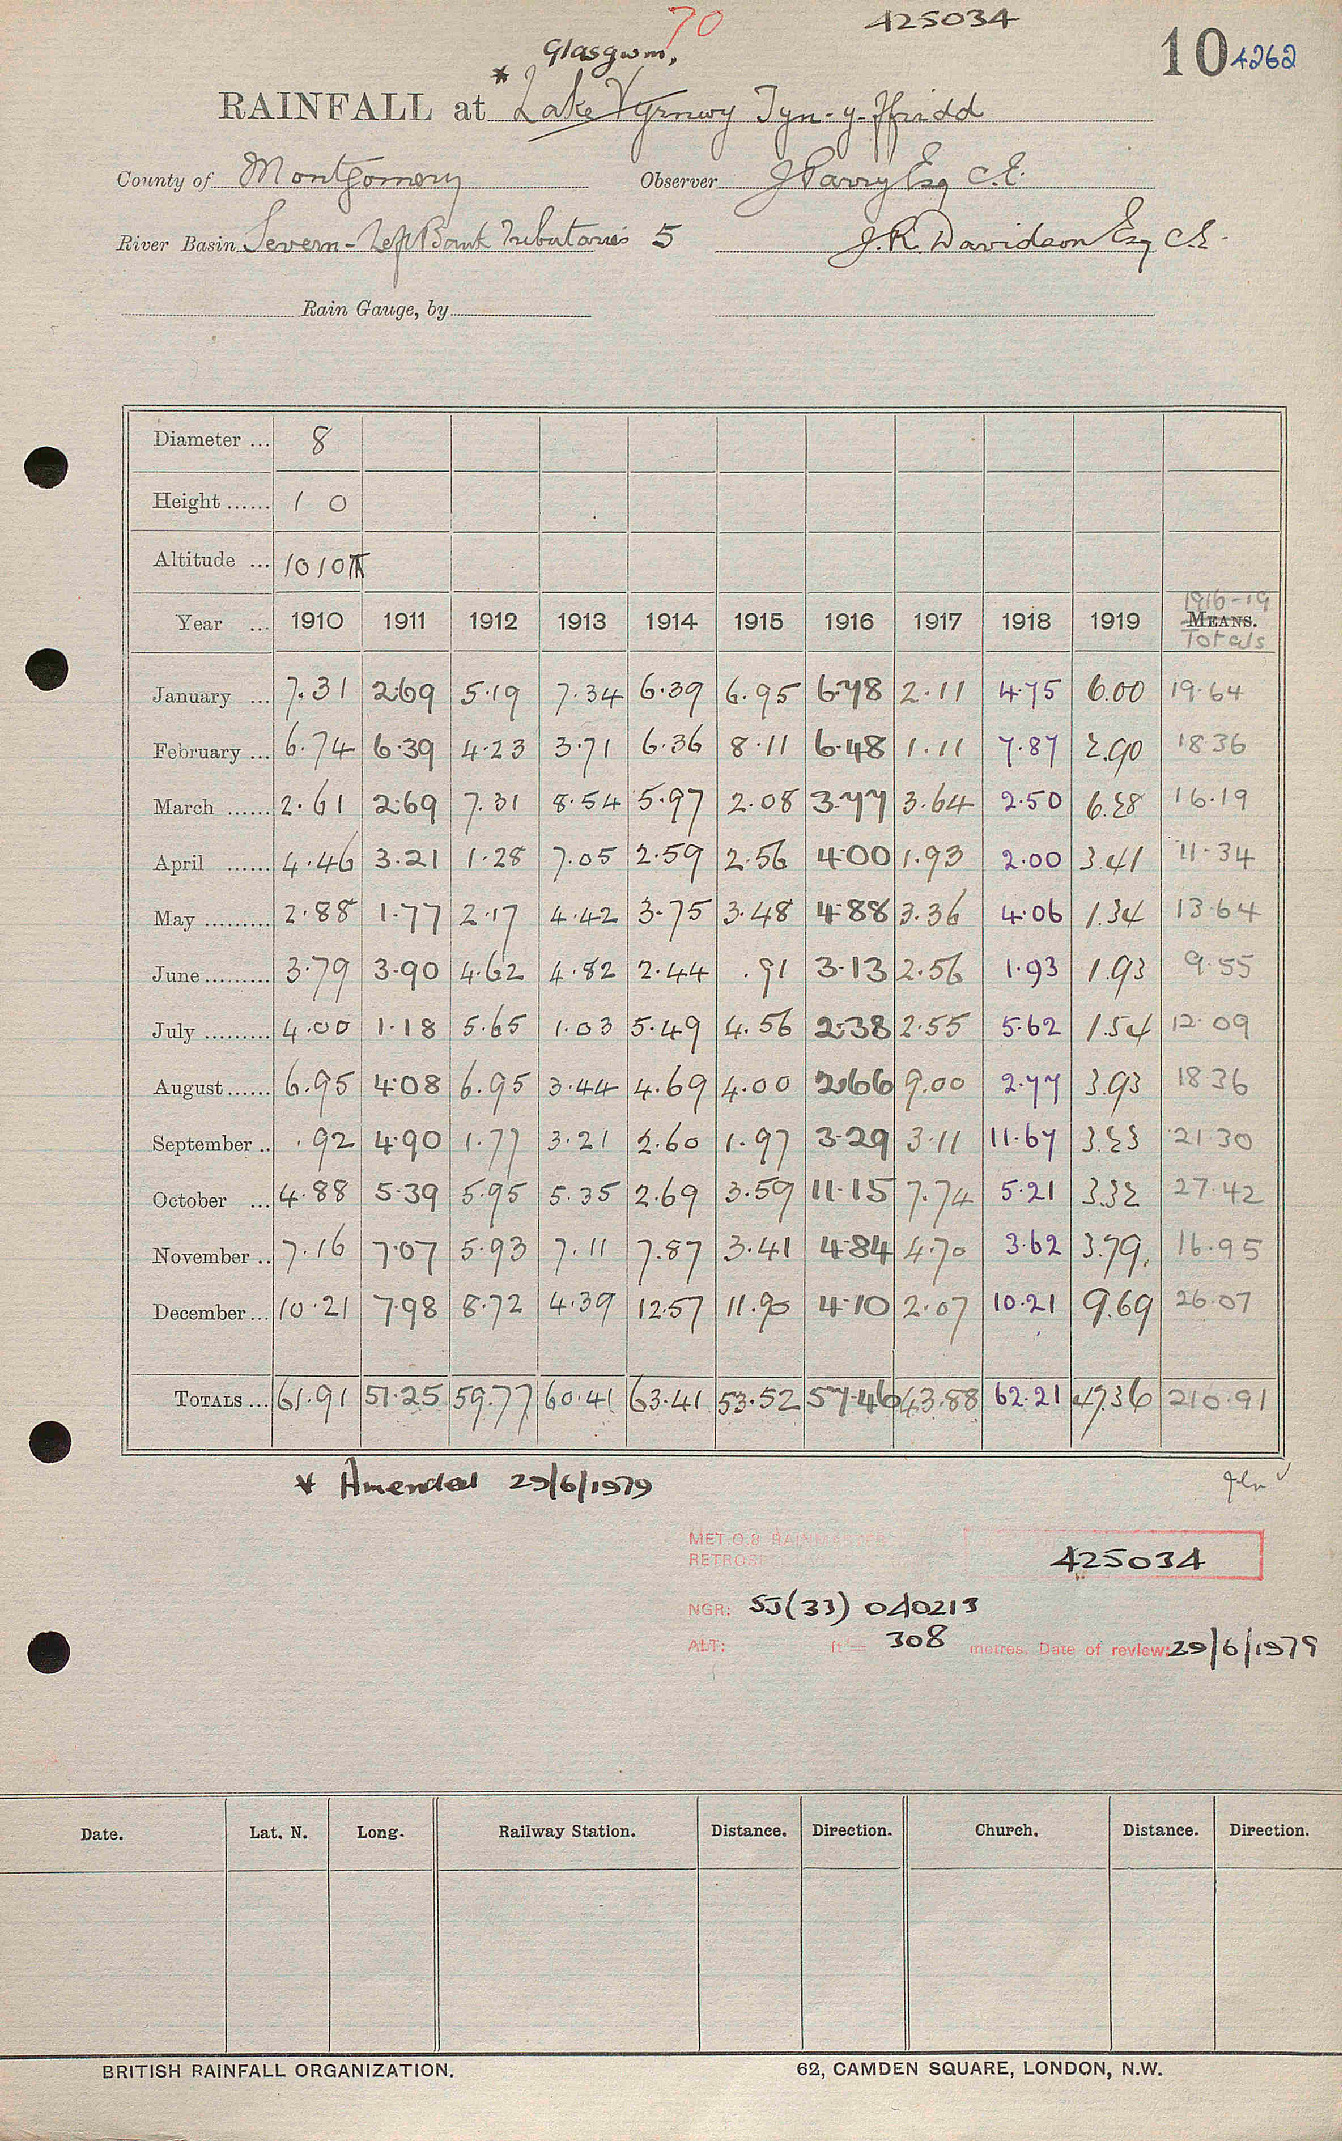 70
425034
Glasgwm,
10 4262
RAINFALL at * Lake Vyrnwy Tyn-y-ffridd
County of Montgomery Observer J Parry Esq C.E.
River Basin Severn - Left Bank Tributaries 5 J.R. Davidson Esq C.E.
Rain Gauge, by
Diameter ... 8
Height ...... 1 0
Altitude ... 1010 ft
1916-19
Year ... 1910 1911 1912 1913 1914 1915 1916 1917 1918 1919 MEANS.
Totals
January ... 7.31 2.69 5.19 7.34 6.39 6.95 6.78 2.11 4.75 6.00 19.64
February ... 6.74 6.39 4.23 3.71 6.36 8.11 6.48 1.11 7.87 2.90 18.36
March ...... 2.61 2.69 7.31 8.54 5.97 2.08 3.77 3.64 2.50 6.28 16.19
April ...... 4.46 3.21 1.28 7.05 2.59 2.56 4.00 1.93 2.00 3.41 11.34
May ......... 2.88 1.77 2.17 4.42 3.75 3.48 4.88 3.36 4.06 1.34 13.64
June ......... 3.79 3.90 4.62 4.82 2.44 .91 3.13 2.56 1.93 1.93 9.55
July ......... 4.00 1.18 5.65 1.03 5.49 4.56 2.38 2.55 5.62 1.54 12.09
August ...... 6.95 4.08 6.95 3.44 4.69 4.00 2.66 9.00 2.77 3.93 18.36
September .. .92 4.90 1.77 3.21 2.60 1.97 3.29 3.11 11.67 3.23 21.30
October ... 4.88 5.39 5.95 5.35 2.69 3.59 11.15 7.74 5.21 3.32 27.42
November .. 7.16 7.07 5.93 7.11 7.87 3.41 4.84 4.70 3.62 3.79. 16.95
December ... 10.21 7.98 8.72 4.39 12.57 11.90 4.10 2.07 10.21 9.69 26.07
TOTALS ... 61.91 51.25 59.77 60.41 63.41 53.52 57.46 43.88 62.21 47.36 210.91
* Amended 29/6/1979
MET.O.8
RETROS
425034
NGR: SJ(33) 040213
ALT: ft = 308 metres. Date of review: 29/6/1979
Date. Lat. N. Long. Railway Station. Distance. Direction. Church. Distance. Direction.
BRITISH RAINFALL ORGANIZATION. 62, CAMDEN SQUARE, LONDON, N.W.